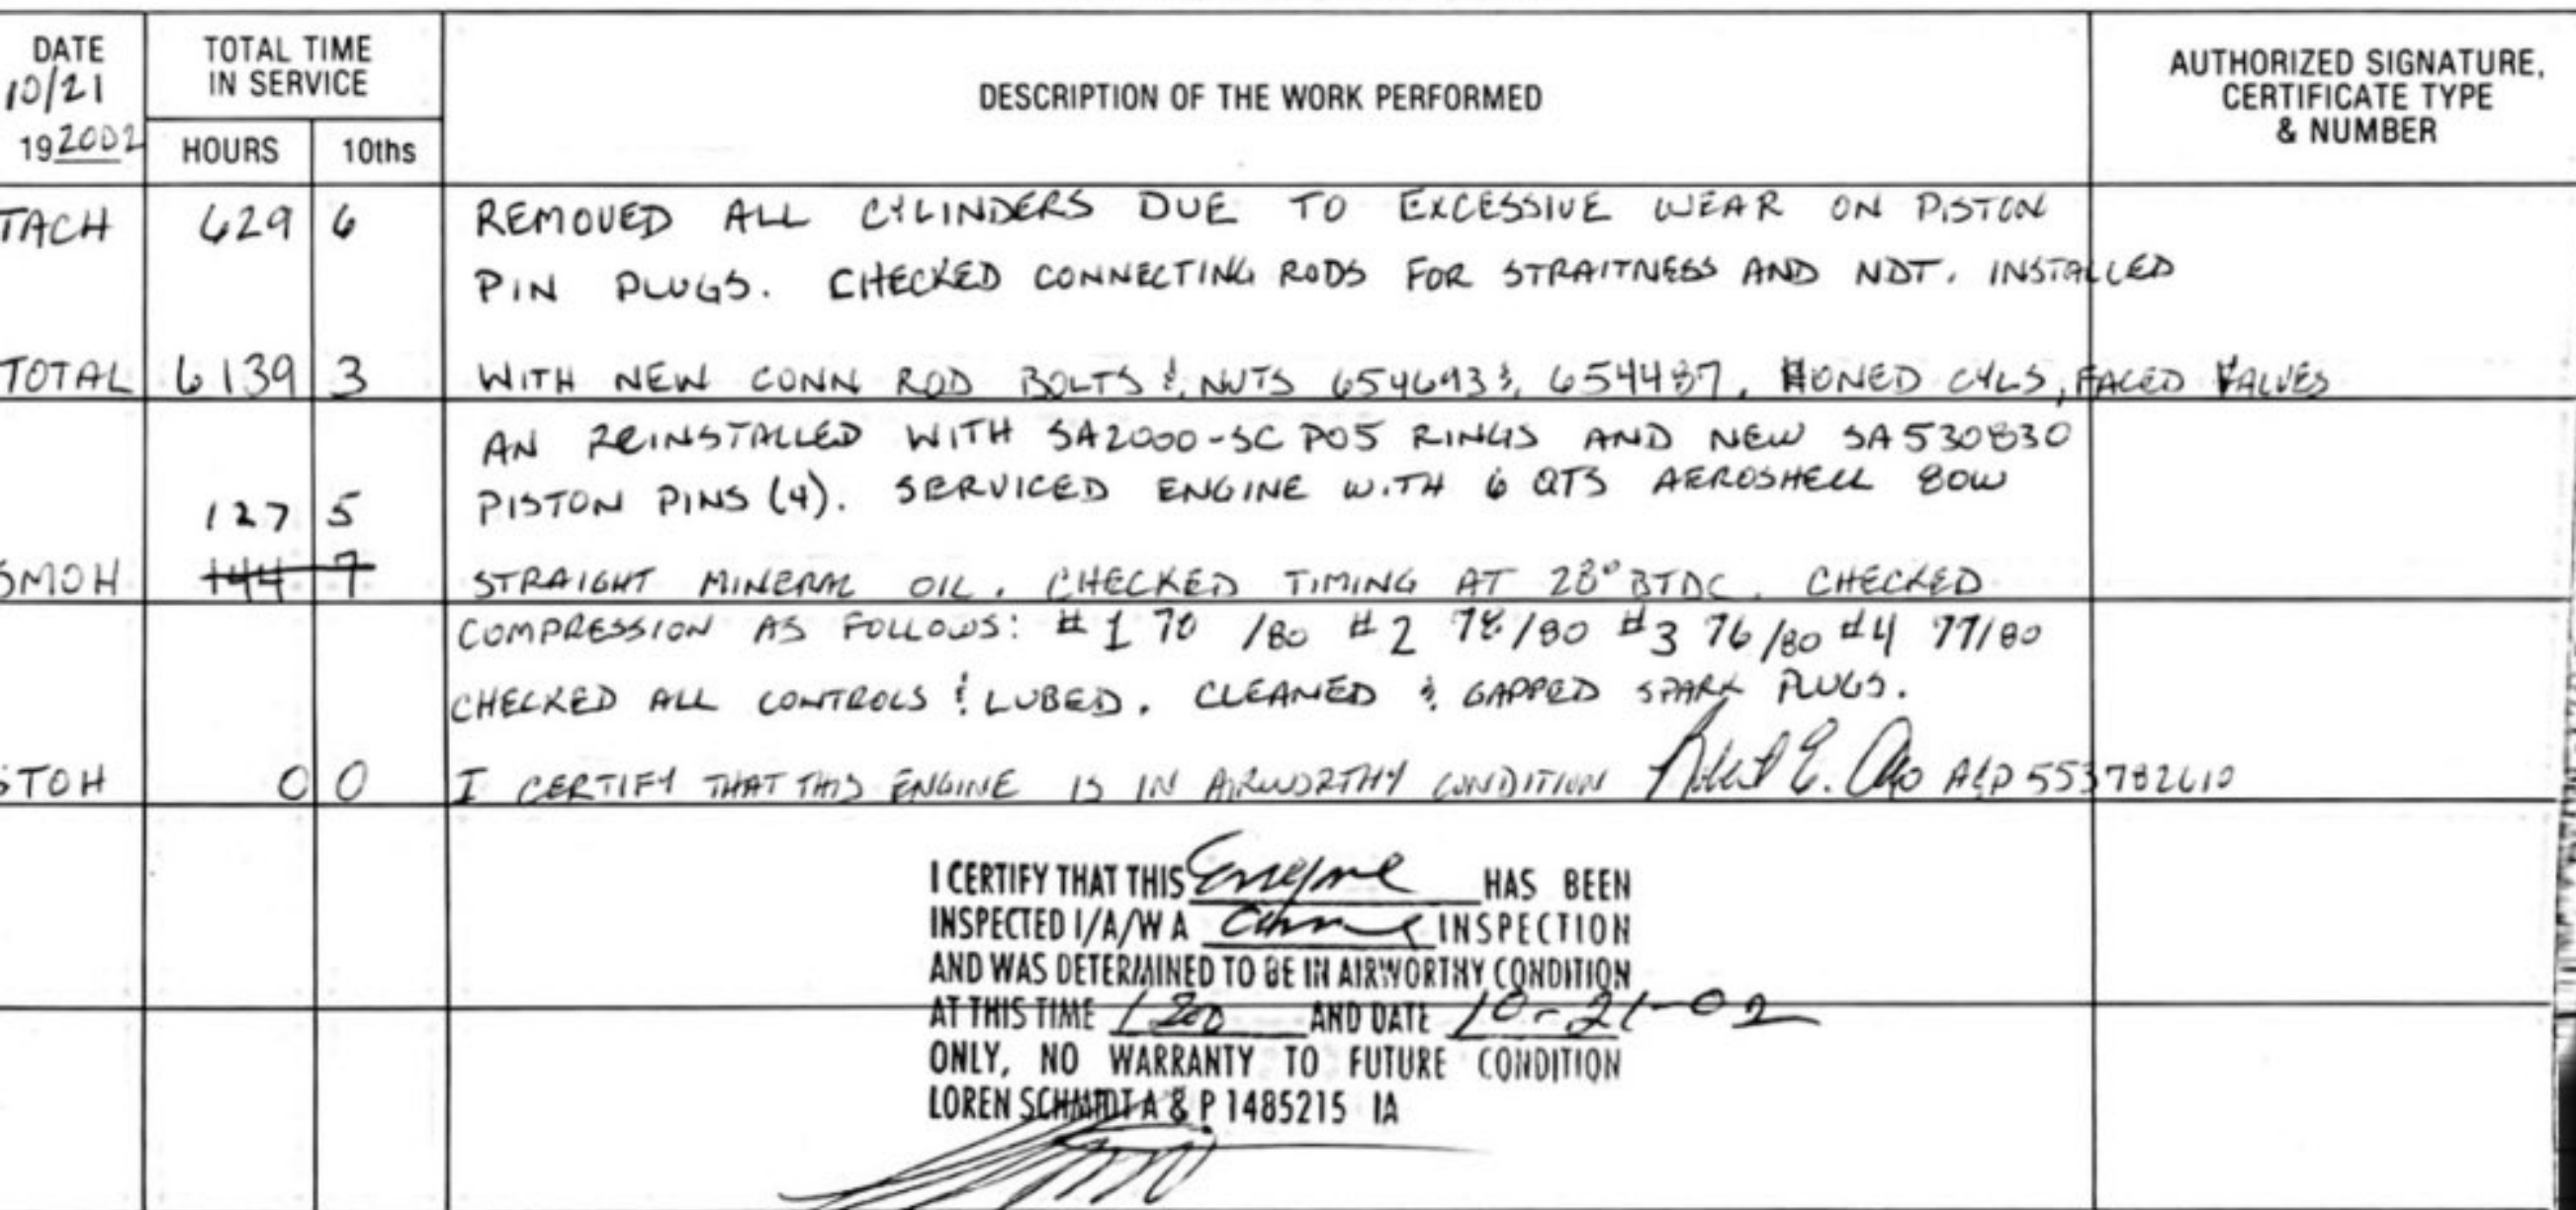 DATE
10/21
192002
TOTAL TIME
IN SERVICE
HOURS
10ths
DESCRIPTION OF THE WORK PERFORMED
AUTHORIZED SIGNATURE,
CERTIFICATE TYPE
& NUMBER
TACH 629 6 REMOVED ALL CYLINDERS DUE TO EXCESSIVE WEAR ON PISTON
PIN PLUGS. CHECKED CONNECTING RODS FOR STRAITNESS AND NDT. INSTALLED
TOTAL 6139 3 WITH NEW CONN ROD BOLTS & NUTS 654693 & 654487, HONED CYLS, FACED VALVES
AN REINSTALLED WITH SA2000-SC P05 RINGS AND NEW SA530830
127 5 PISTON PINS (4). SERVICED ENGINE WITH 6 QTS AEROSHELL 80W
SMOH 144 7 STRAIGHT MINERAL OIL. CHECKED TIMING AT 28° BTDC. CHECKED
COMPRESSION AS FOLLOWS: #1 78 /80 #2 78/80 #3 76/80 #4 77/80
CHECKED ALL CONTROLS & LUBED. CLEANED & GAPPED SPARK PLUGS.
STOH 0 0 I CERTIFY THAT THIS ENGINE IS IN AIRWORTHY CONDITION Robert E. A&P 553782610
I CERTIFY THAT THIS Engine HAS BEEN
INSPECTED I/A/W A INSPECTION
AND WAS DETERMINED TO BE IN AIRWORTHY CONDITION
AT THIS TIME 1200 AND DATE 10-21-02
ONLY, NO WARRANTY TO FUTURE CONDITION
LOREN SCHMIDT A & P 1485215 IA